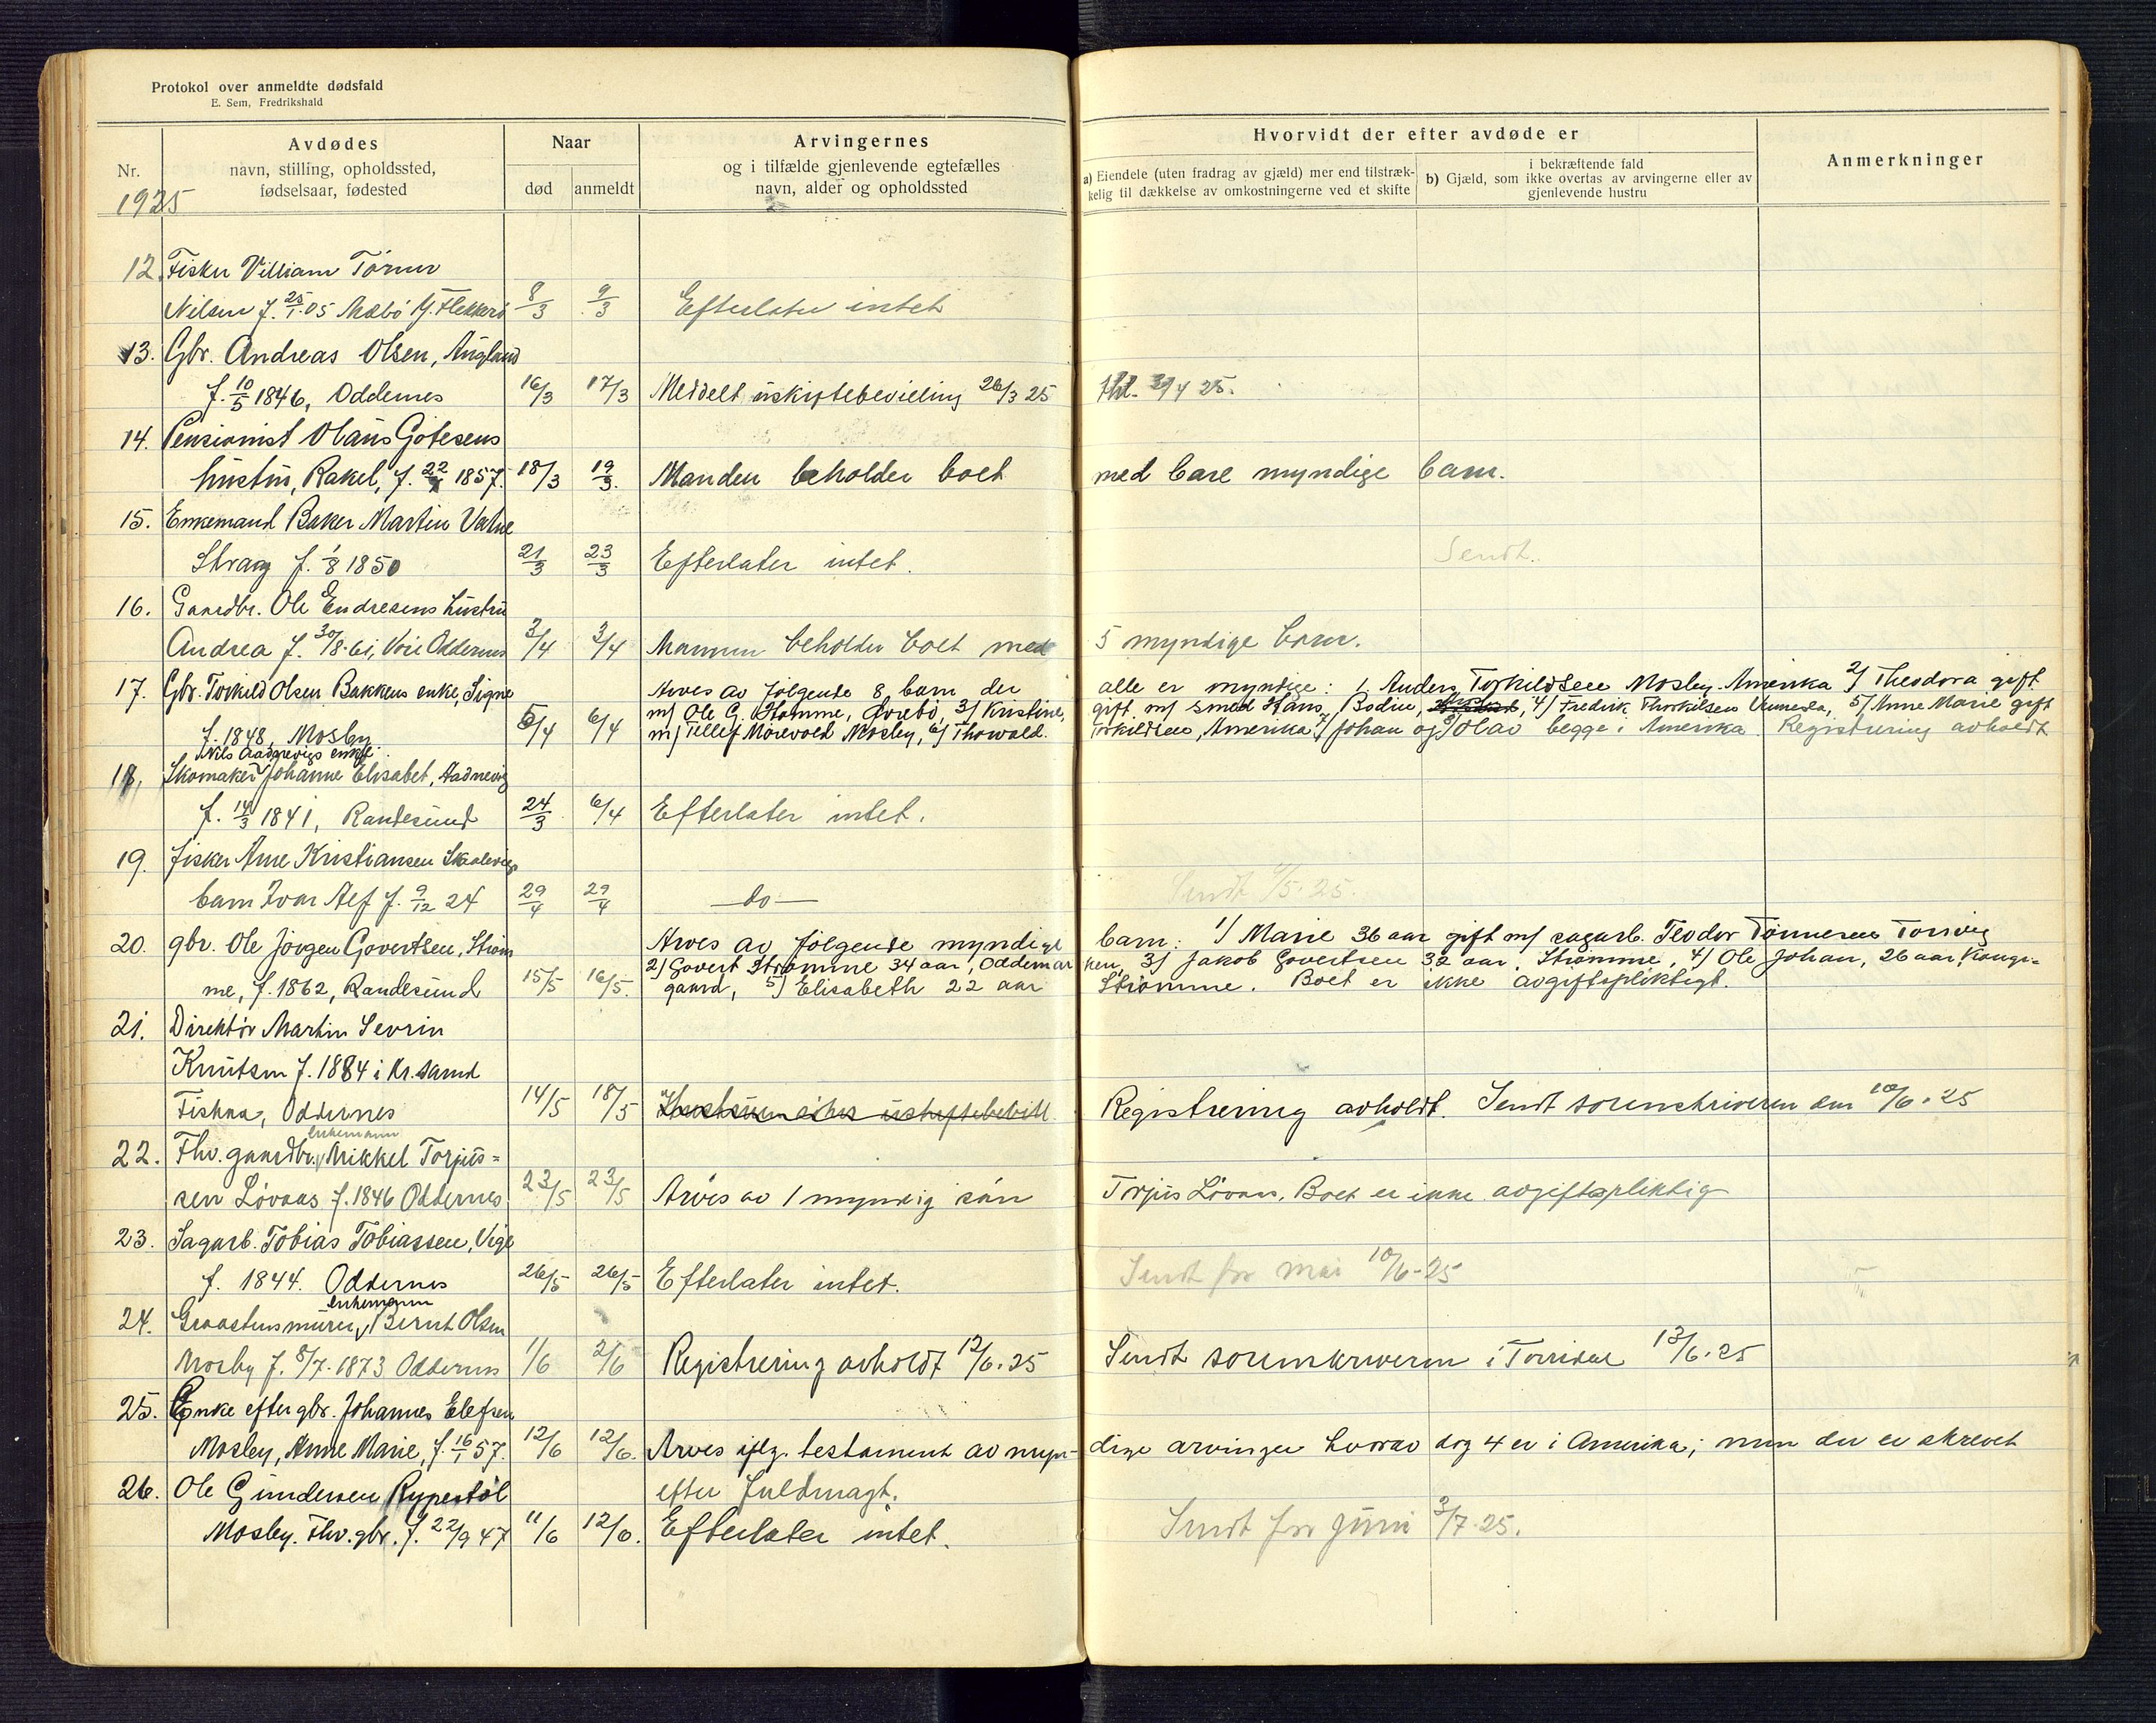 Protokol over anmeldte dødsfald
E. Sem, Fredrikshald
Nr.
1925
Avdødes
navn, stilling, opholdssted,
fødselsaar, fødested
Naar
død
anmeldt
Arvingernes
og i tilfælde gjenlevende egtefælles
navn, alder og opholdssted
Hvorvidt der efter avdøde er
a) Eiendele (uten fradrag av gjæld) mer end tilstræk-
kelig til dækkelse av omkostningerne ved et skifte
i bekræftende fald
b) Gjæld, som ikke overtas av arvingerne eller av
gjenlevende hustru
Anmerkninger
12. Fisker Villiam Tørner
Nilsen f. 25/1.05 Mæbø Y. Flekkerø 8/3 9/3 Efterlater intet
13. Gbr. Andreas Olsen, Augland
f. 10/5 1846, Oddernes 16/3 17/3 Meddelt uskiftebevilling 26/3 25
14. Pensionist Olaus Gotesens
hustru, Rakel, f. 1857. 18/3 19/3. Manden beholder boet med bare myndige barn.
15. Enkemand Baker Martin Valne
Stray f. 1/8 1850 21/3 23/3 Efterlater intet. Sendt.
16. Gaardbr. Ole Endresens hustru
Andrea f. 30/8.61, Voie Oddernes 3/4 3/4 Mannen beholder boet med 5 myndige barn.
17. Gbr. Torkild Olsen Bakkens enke, Signe Arves av følgende 8 barn der alle er myndige: 1. Anders Torkildsen Mosby. Amerika 2/ Theodora gift
m/ Ole G. Homme, Øvrebø, 3/ Kristine, gift m/ smed Hans Bodin, 4/ Fredrik Thorkilsen Vennesla, 5/ Anne Marie gift
f. 1848, Mosby 5/4 6/4 m/ Tellef Mørevold Mosby, 6/ Thorvald Torkildsen, Amerika 7/ Johan og 8/ Olav begge i Amerika. Registrering avholdt
Nils Aadnevigs enke
18. Skomaker Johanne Elisabet, Aadnevig
f. 14/3 1841, Randesund 24/3 6/4 Efterlater intet.
19. Fisker Arne Kristiansen Skaalevigs
barn Ivar Alf f. 9/12 24 29/4 29/4 do Sendt 1/5.25.
20. gbr. Ole Jørgen Govertsen, Strøm Arves av følgende myndige barn: 1/ Marie 36 aar gift m/ sagarb. Teodor Tønnesen Torsvig
2/ Govert Strømme 34 aar, Oddernes 3/ Jakob Govertsen 32 aar, Strømme, 4/ Ole Johan, 26 aar, Kongs-
me, f. 1862, Randesund 15/5 16/5. gaard, 5/ Elisabeth 22 aar Strømme. Boet er ikke avgiftspliktigt.
21. Direktør Martin Sevrin
Knutsen f. 1884 i Kr.sand
Fiskaa, Oddernes 14/5 18/5 Registrering avholdt. Sendt sorenskriveren den 10/6.25
enkemann
22. Fhv. gaardbr. Mikkel Torjus=
sen Løvaas f. 1846 Oddernes 23/5 23/5 Arves av 1 myndig søn Torjus Løvaas. Boet er ikke avgiftspliktig
23. Sagarb. Tobias Tobiassen, Vige
f. 1844. Oddernes 26/5 26/5 Efterlater intet. Sendt for mai 10/6-25
enkemann
24. Graastensmurer Bernt Olsen
Mosby f. 8/7.1873 Oddernes 1/6 2/6 Registrering avholdt 12/6.25 Sendt sorenskriveren i Torridal 13/6.25
25. Enke efter gbr. Johannes Elefsen
Mosby, Anne Marie, f. 16/1 57. 12/6 12/6. Arves iflg. testament av myn-dige arvinger hvorav dog 4 er i Amerika; men der er skrevet
efter fuldmagt.
26. Ole Gundersen Rypestøl
Mosby. Fhv. gbr. f. 22/9 47 11/6 12/6. Efterlater intet. Sendt for juni 3/7.25.